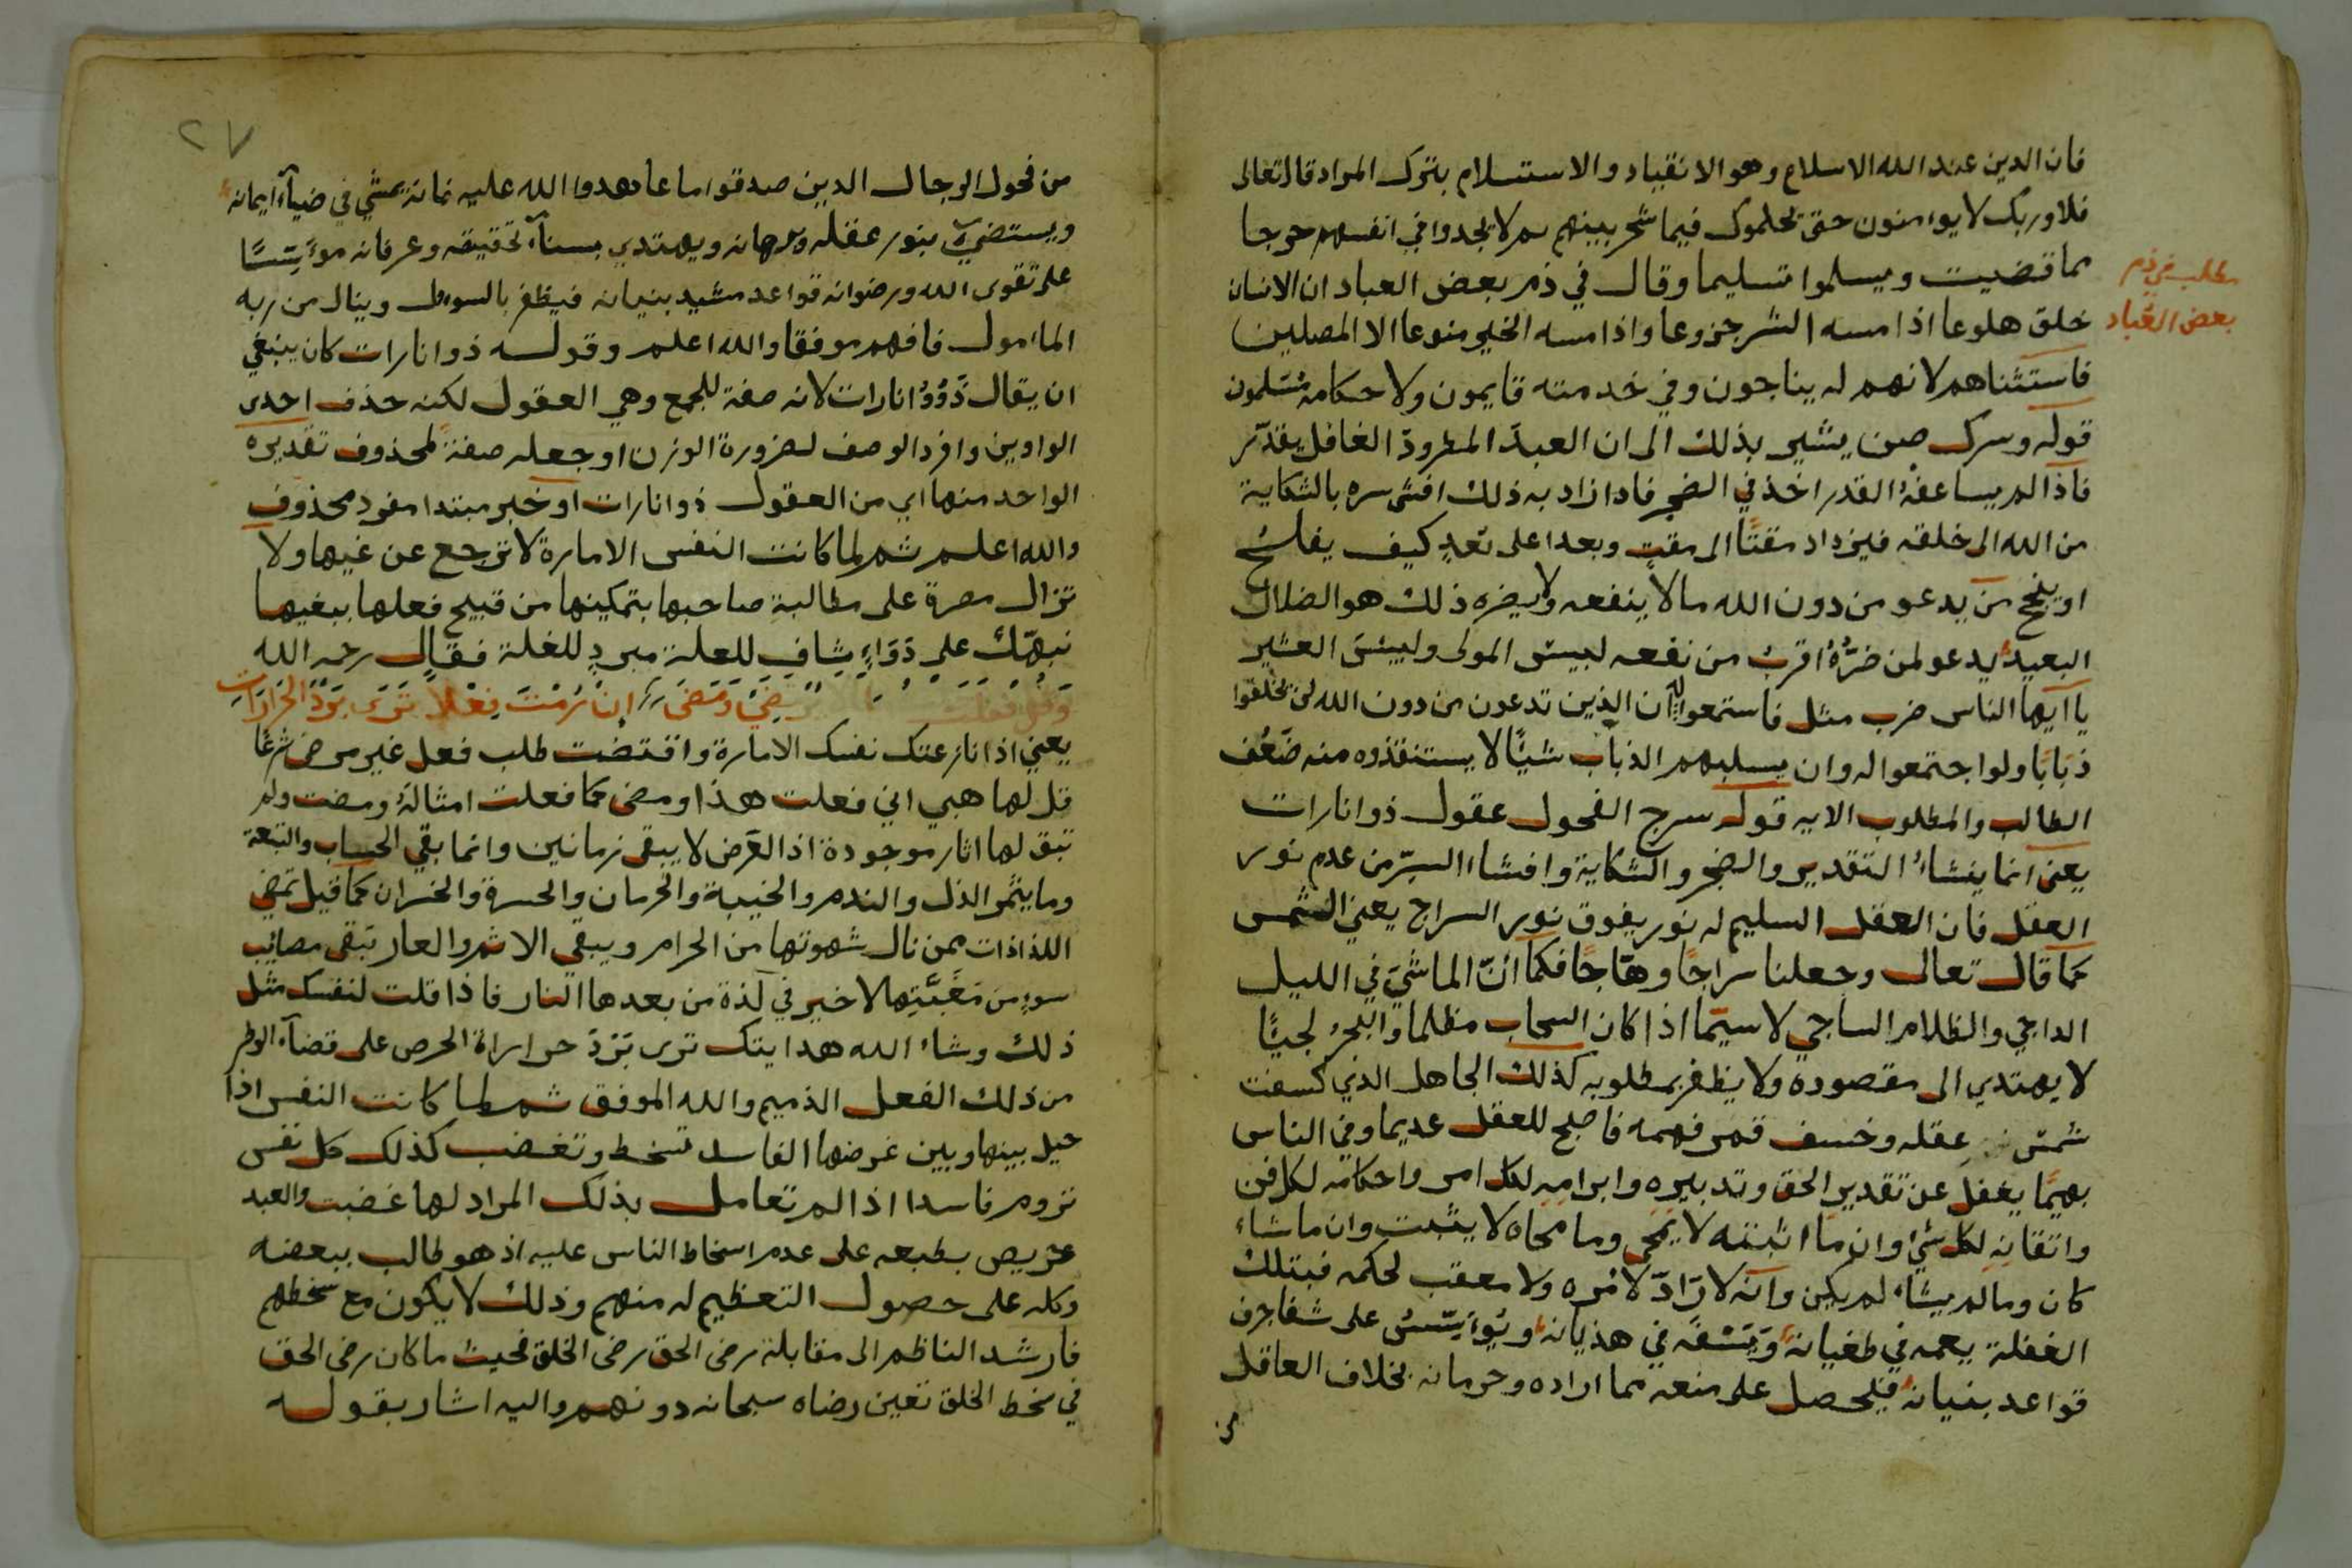 فان الدين عند الله الاسلام وهو الانقياد والاستسلام بترك المراد قال تعالى
فلا وربك لا يوامنون حتى يحكموك فيما شجر بينهم ثم لا يجدوا في انفسهم حرجا
مما قضيت ويسلموا تسليما وقال في ذم بعض العباد ان الانسان
مطلب في ذم
بعض العباد
خلق هلوعا اذا مسه الشر جزوعا واذا مسه الخير منوعا الا المصلين
فاستثناهم لانهم له يناجون وفي خدمته قايمون ولاحكامه مسلمون
قوله وسرك صن يشير بذلك الى ان العبد المطرود الغافل يقدر
فاذا لم يساعفه القدر اخذ في الضجر فاذا زاد به ذلك افشى سره بالشكاية
من الله الى خلقه فيزداد مقتا الى مقت وبعدا على بعد كيف يفلح
او ينجح من يدعو من دون الله مالا ينفعه ولا يضره ذلك هو الضلال
البعيد يدعو لمن ضره اقرب من نفعه لبيس المولى ولبيس العشير
يا ايها الناس ضرب مثل فاستمعوا له ان الذين تدعون من دون الله لن يخلقوا
ذبابا ولو اجتمعوا له وان يسلبهم الذباب شيئا لا يستنقذوه منه ضعف
الطالب والمطلوب الايه قوله سرج الفحول عقول ذو انارات
يعنى انما ينشاء التقدير والضجر والشكاية وافشاء السر من عدم نور
العقل فان العقل السليم له نور يفوق نور السراج يعني الشمس
كما قال تعالى وجعلنا سراجا وهاجا فكما ان الماشي في الليل
الداجي والظلام الساجي لا سيما اذا كان السحاب مظلما والبحر لجيا
لا يهتدي الى مقصوده ولا يظفر بمطلوبه كذلك الجاهل الذي كسفت
شمس عقله وخسف قمر فهمه فاصبح للعقل عديما وفي الناس
بهيما يغفل عن تقدير الحق وتدبيره وابرامه لكل امر واحكامه لكل فن
واتقانه لكل شيء وان ما اثبته لا يمحى وما محاه لا يثبت وان ما شاء
كان وما لم يشاء لم يكن وانه لا راد لامره ولا معقب لحكمه فبتلك
الغفلة يعمه في طغيانه ويسفه في هذيانه ويؤسس على شفا جرف
قواعد بنيانه فيحصل على منعه مما اراده وحرمانه بخلاف العاقل
من
٢٧
من فحول الرجال الذين صدقوا ما عاهدوا الله عليه فانه يمشي في ضياء ايمانه
ويستضيء بنور عقله وبرهانه ويهتدي بسناء تحقيقه وعرفانه مؤسسا
على تقوى الله ورضوانه قواعد مشيد بنيانه فيظفر بالسوال وينال من ربه
الماءمول فافهم موفقا والله اعلم وقوله ذو انارات كان ينبغي
ان يقال ذوو انارات لانه صفة للجمع وهي العقول لكنه حذف احدى
الواوين وافرد الوصف لضرورة الوزن او جعله صفة لمحذوف تقديره
الواحد منها اي من العقول ذو انارات او خبر مبتدا مفرد محذوف
والله اعلم ثم لما كانت النفس الامارة لا ترجع عن غيها ولا
تزال مصرة على مطالبة صاحبها بتمكينها من قبيح فعلها ببغيها
نبهك على دواء شاف للعلة مبرد للغلة فقال رحمه الله
وقل فعلت ومضى ان رمت فعلا ترى برد الحرارات
يعني اذا نازعتك نفسك الامارة واقتضت طلب فعل غير مرضي شرعا
قل لها هبي اني فعلت هذا ومضى كما فعلت امثاله ومضت ولم
تبق لها اثار موجودة اذ العرض لا يبقى زمانين وانما بقي الحساب والتبعة
وما يثمر الذل والندم والخيبة والحرمان والحسرة والخسران كما قيل تمضي
اللذاذات ممن نال شهوتها من الحرام ويبقى الاثم والعار تبقى مصائب
سوء من مغبتها لا خير في لذة من بعدها النار فاذا قلت لنفسك مثل
ذلك وشاء الله هدايتك ترى برد حرارة الحرص على قضاء الوطر
من ذلك الفعل الذميم والله الموفق ثم لما كانت النفس اذا
حيل بينها وبين غرضها الفاسد تسخط وتغضب كذلك كل نفس
تروم فاسدا اذا لم تعامل بذلك المراد لها غضبت والعبد
حريص بطبعه على عدم اسخاط الناس عليه اذ هو طالب ببعضه
وكله على حصول التعظيم له منهم وذلك لا يكون مع سخطهم
فارشد الناظم الى مقابلة رضى الحق برضى الخلق فحيث ما كان رضى الحق
في سخط الخلق تعين رضاه سبحانه دونهم واليه اشار بقوله